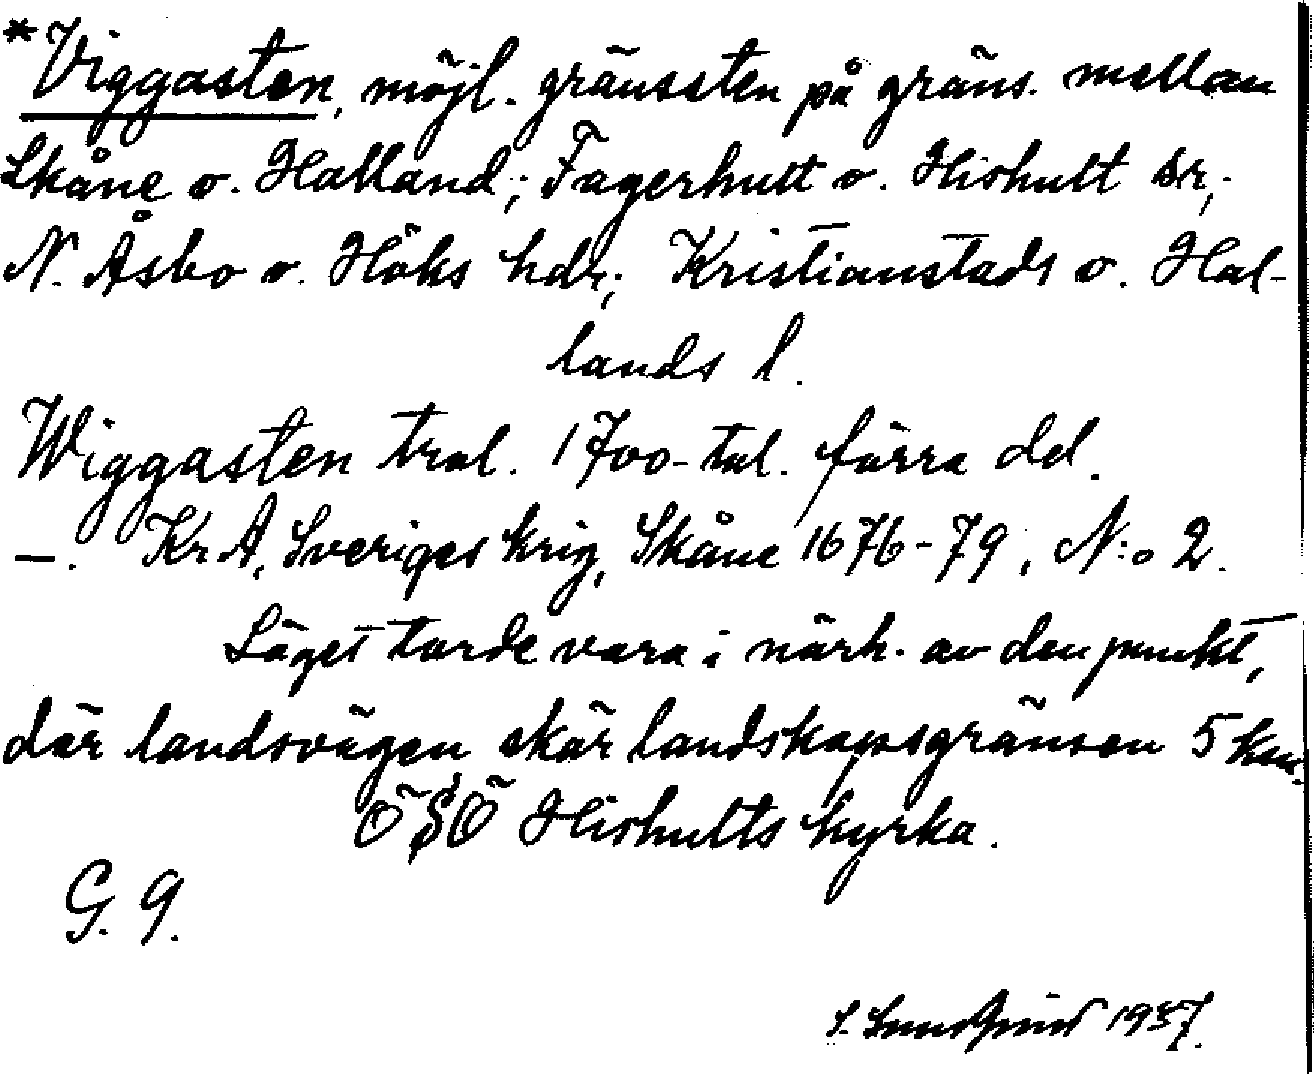 *Viggasten, möjl. gränssten på gräns. mellan
Skåne o. Halland; Fagerhult o. Hishult sr,
N. Åsbo o. Höks hdr; Kristianstads o. Hal-
lands l.
Wiggasten trol. 1700-tal. färra dd.
—. KrA, Sveriges krig, Skåne 1676-79, N:o 2.
Läget torde vara i närh. av den punkt,
där landsvägen skär landskapsgränsen 5 km.
ÖSÖ Hishults kyrka.
G. 9.
S. 1937.